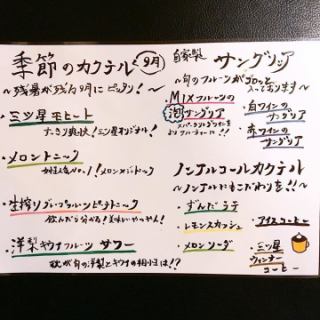 季節のカクテル 9月
～残暑が残る9月にピッタリ！～
・三ツ星モヒート
すっきり爽快！三ツ星オリジナル！
・メロントニック
女性人気No.1！メロン×ジントニック
・生搾りグレープフルーツピーチトニック
飲んだら分かる！美味いやっやん！
・洋梨キウイフルーツ サワー
秋が旬の洋梨とキウイの相性は！？
自家製 サングリア
～旬のフルーツがゴロッと入っております～
・MIXフルーツの
泡サングリア
スパークリングワインを
・白ワインの
サングリア
・赤ワインの
サングリア
ノンアルコールカクテル
～ノンアルにもこだわりを！！～
・ずんだラテ
・レモンスカッシュ
・メロンソーダ
・アイスコーヒー
・三ツ星
ウィンナー
コーヒー